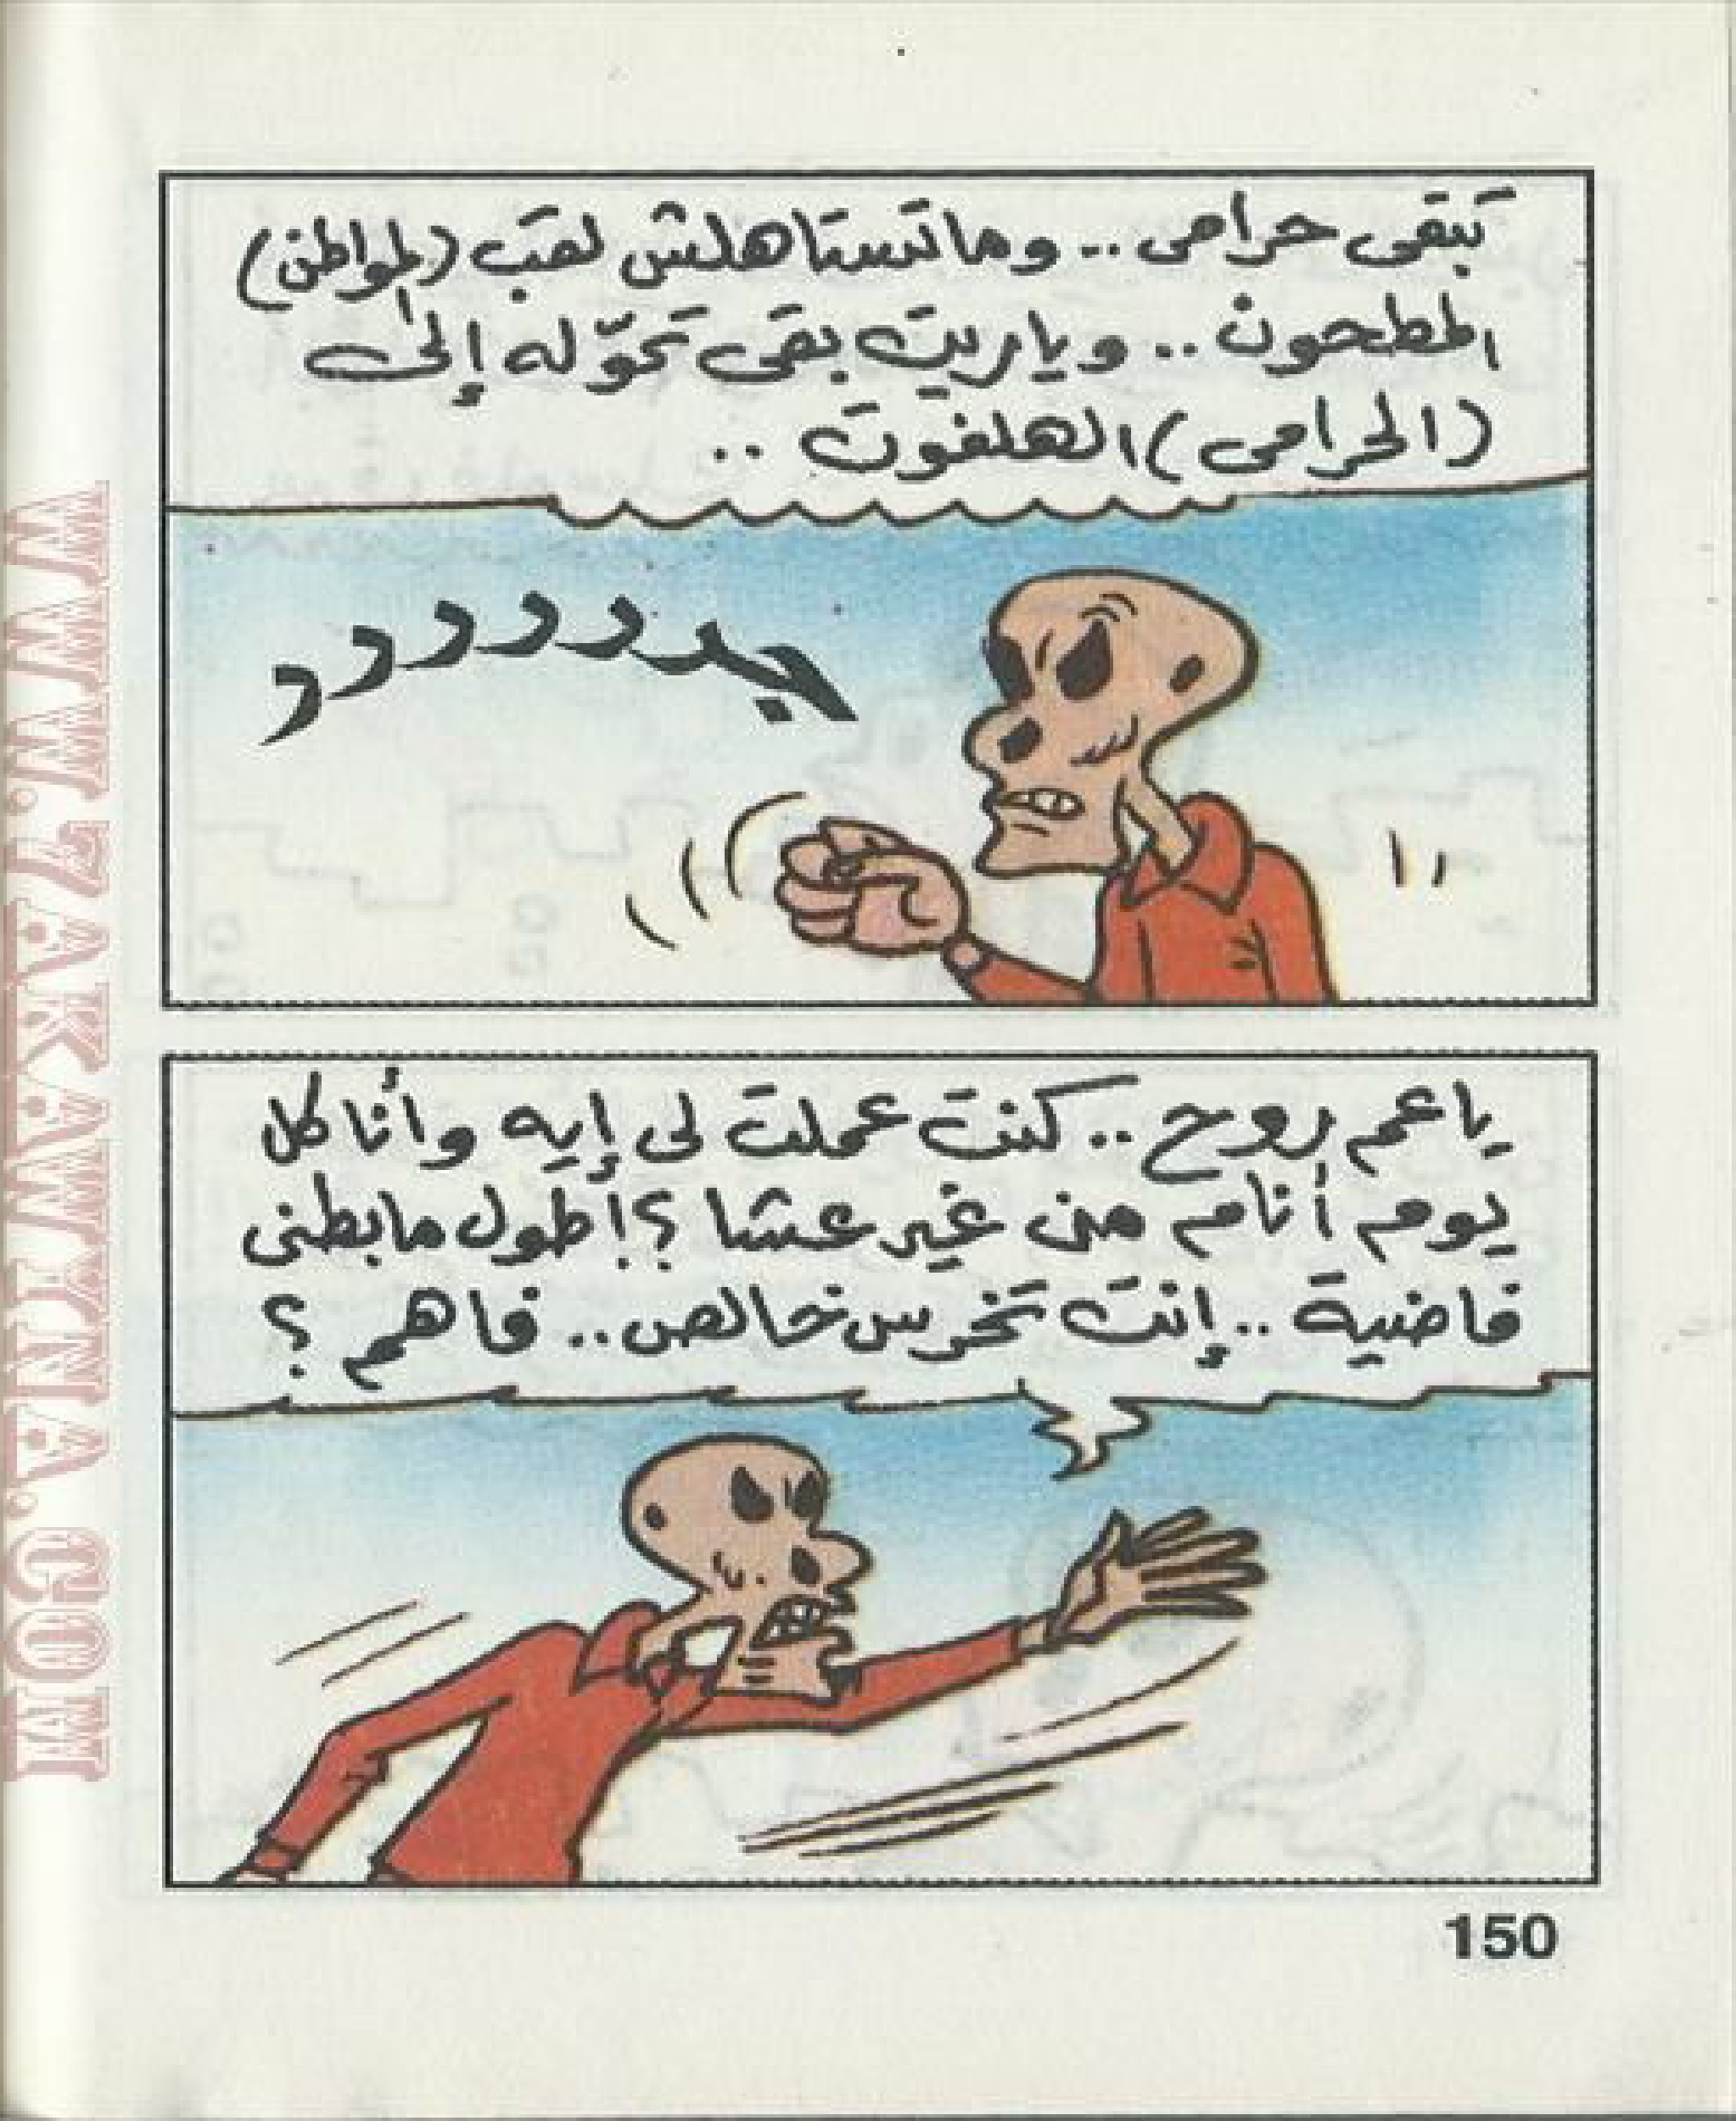 تبقى حرامى .. وماتستاهلش لقب (المواطن)
المطحون .. وياريت بقى تحوّله إلى
(الحرامى) الهلفوت ..
يا عم روح .. كنت عملت لى إيه وأنا كل
يوم أنام من غير عشا ؟! طول ما بطنى
فاضية .. إنت تخرس خالص .. فاهم ؟
150
WWW.ZAKAWTNA.COM